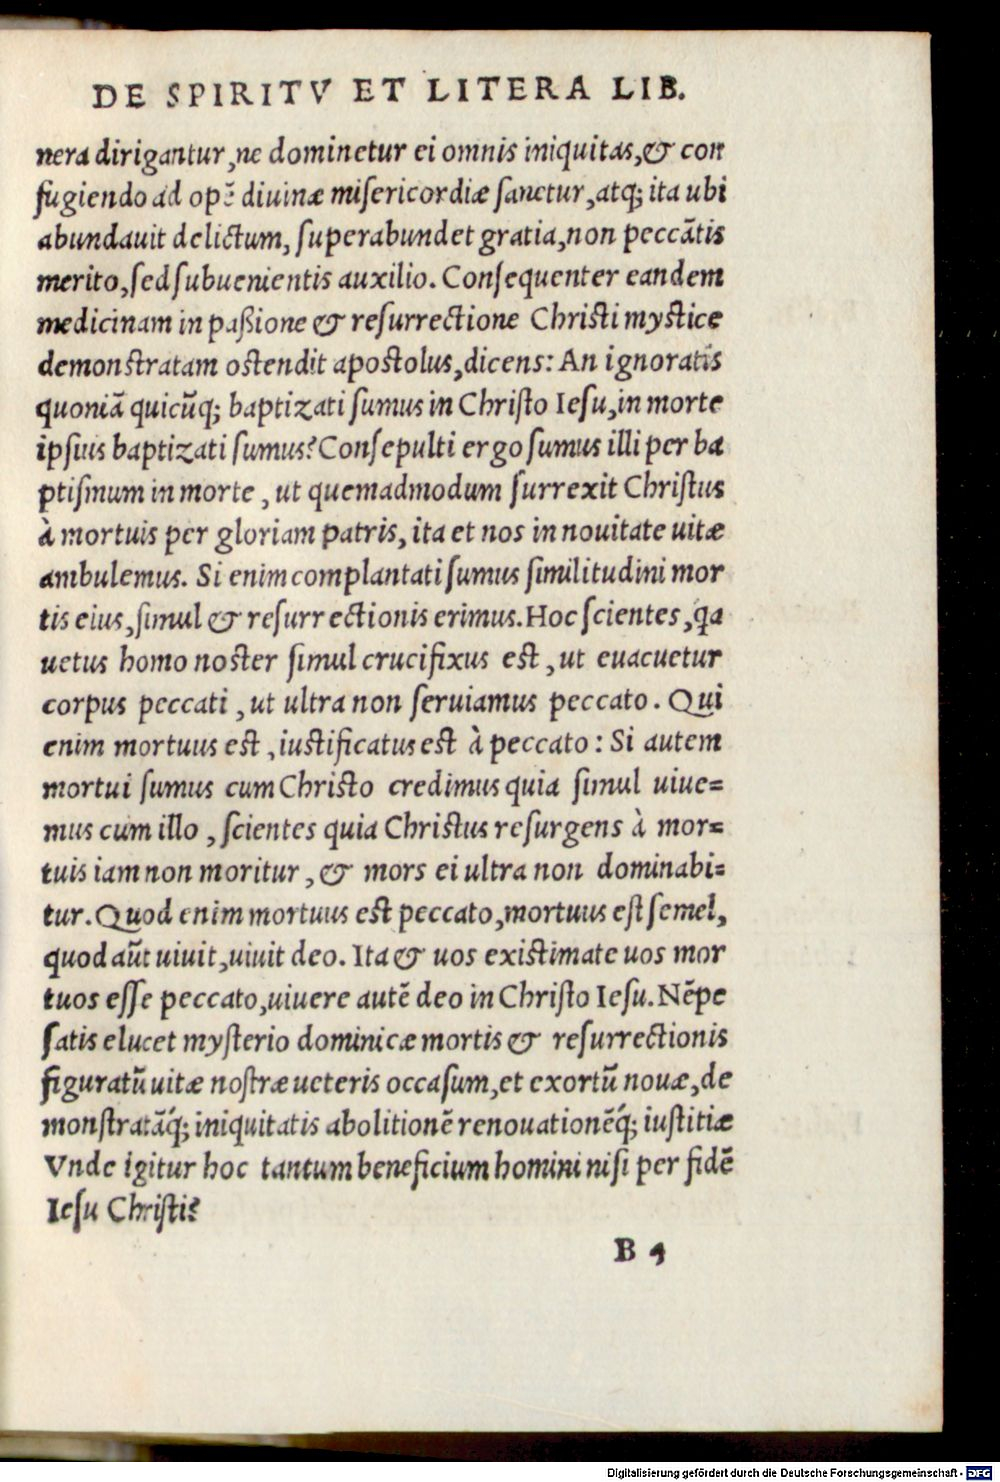 DE SPIRITV ET LITERA LIB.
nera dirigantur, ne dominetur ei omnis iniquitas, & con
fugiendo ad opẽ diuinæ miſericordiæ ſanetur, atq; ita ubi
abundauit delictum, ſuperabundet gratia, non peccãtis
merito, ſed ſubuenientis auxilio. Conſequenter eandem
medicinam in paßione & reſurrectione Chriſti myſtice
demonſtratam oſtendit apoſtolus, dicens: An ignoratis
quoniã quicũq; baptizati ſumus in Chriſto Ieſu, in morte
ipſius baptizati ſumus? Conſepulti ergo ſumus illi per ba
ptiſmum in morte, ut quemadmodum ſurrexit Chriſtus
à mortuis per gloriam patris, ita et nos in nouitate uitæ
ambulemus. Si enim complantati ſumus ſimilitudini mor
tis eius, ſimul & reſurrectionis erimus. Hoc ſcientes, qa
uetus homo noſter ſimul crucifixus eſt, ut euacuetur
corpus peccati, ut ultra non ſeruiamus peccato. Qui
enim mortuus eſt, iuſtificatus eſt à peccato: Si autem
mortui ſumus cum Chriſto credimus quia ſimul uiue=
mus cum illo, ſcientes quia Chriſtus reſurgens à mor=
tuis iam non moritur, & mors ei ultra non dominabi=
tur. Quod enim mortuus eſt peccato, mortuus eſt ſemel,
quod aũt uiuit, uiuit deo. Ita & uos exiſtimate uos mor
tuos eſſe peccato, uiuere autẽ deo in Chriſto Ieſu. Nẽpe
ſatis elucet myſterio dominicæ mortis & reſurrectionis
figuratũ uitæ noſtræ ueteris occaſum, et exortũ nouæ, de
monſtratãq́; iniquitatis abolitionẽ renouationẽq́; iuſtitiæ
Vnde igitur hoc tantum beneficium homini niſi per fidẽ
Ieſu Chriſti?
B 5
Digitalisierung gefördert durch die Deutsche Forschungsgemeinschaft - DFG